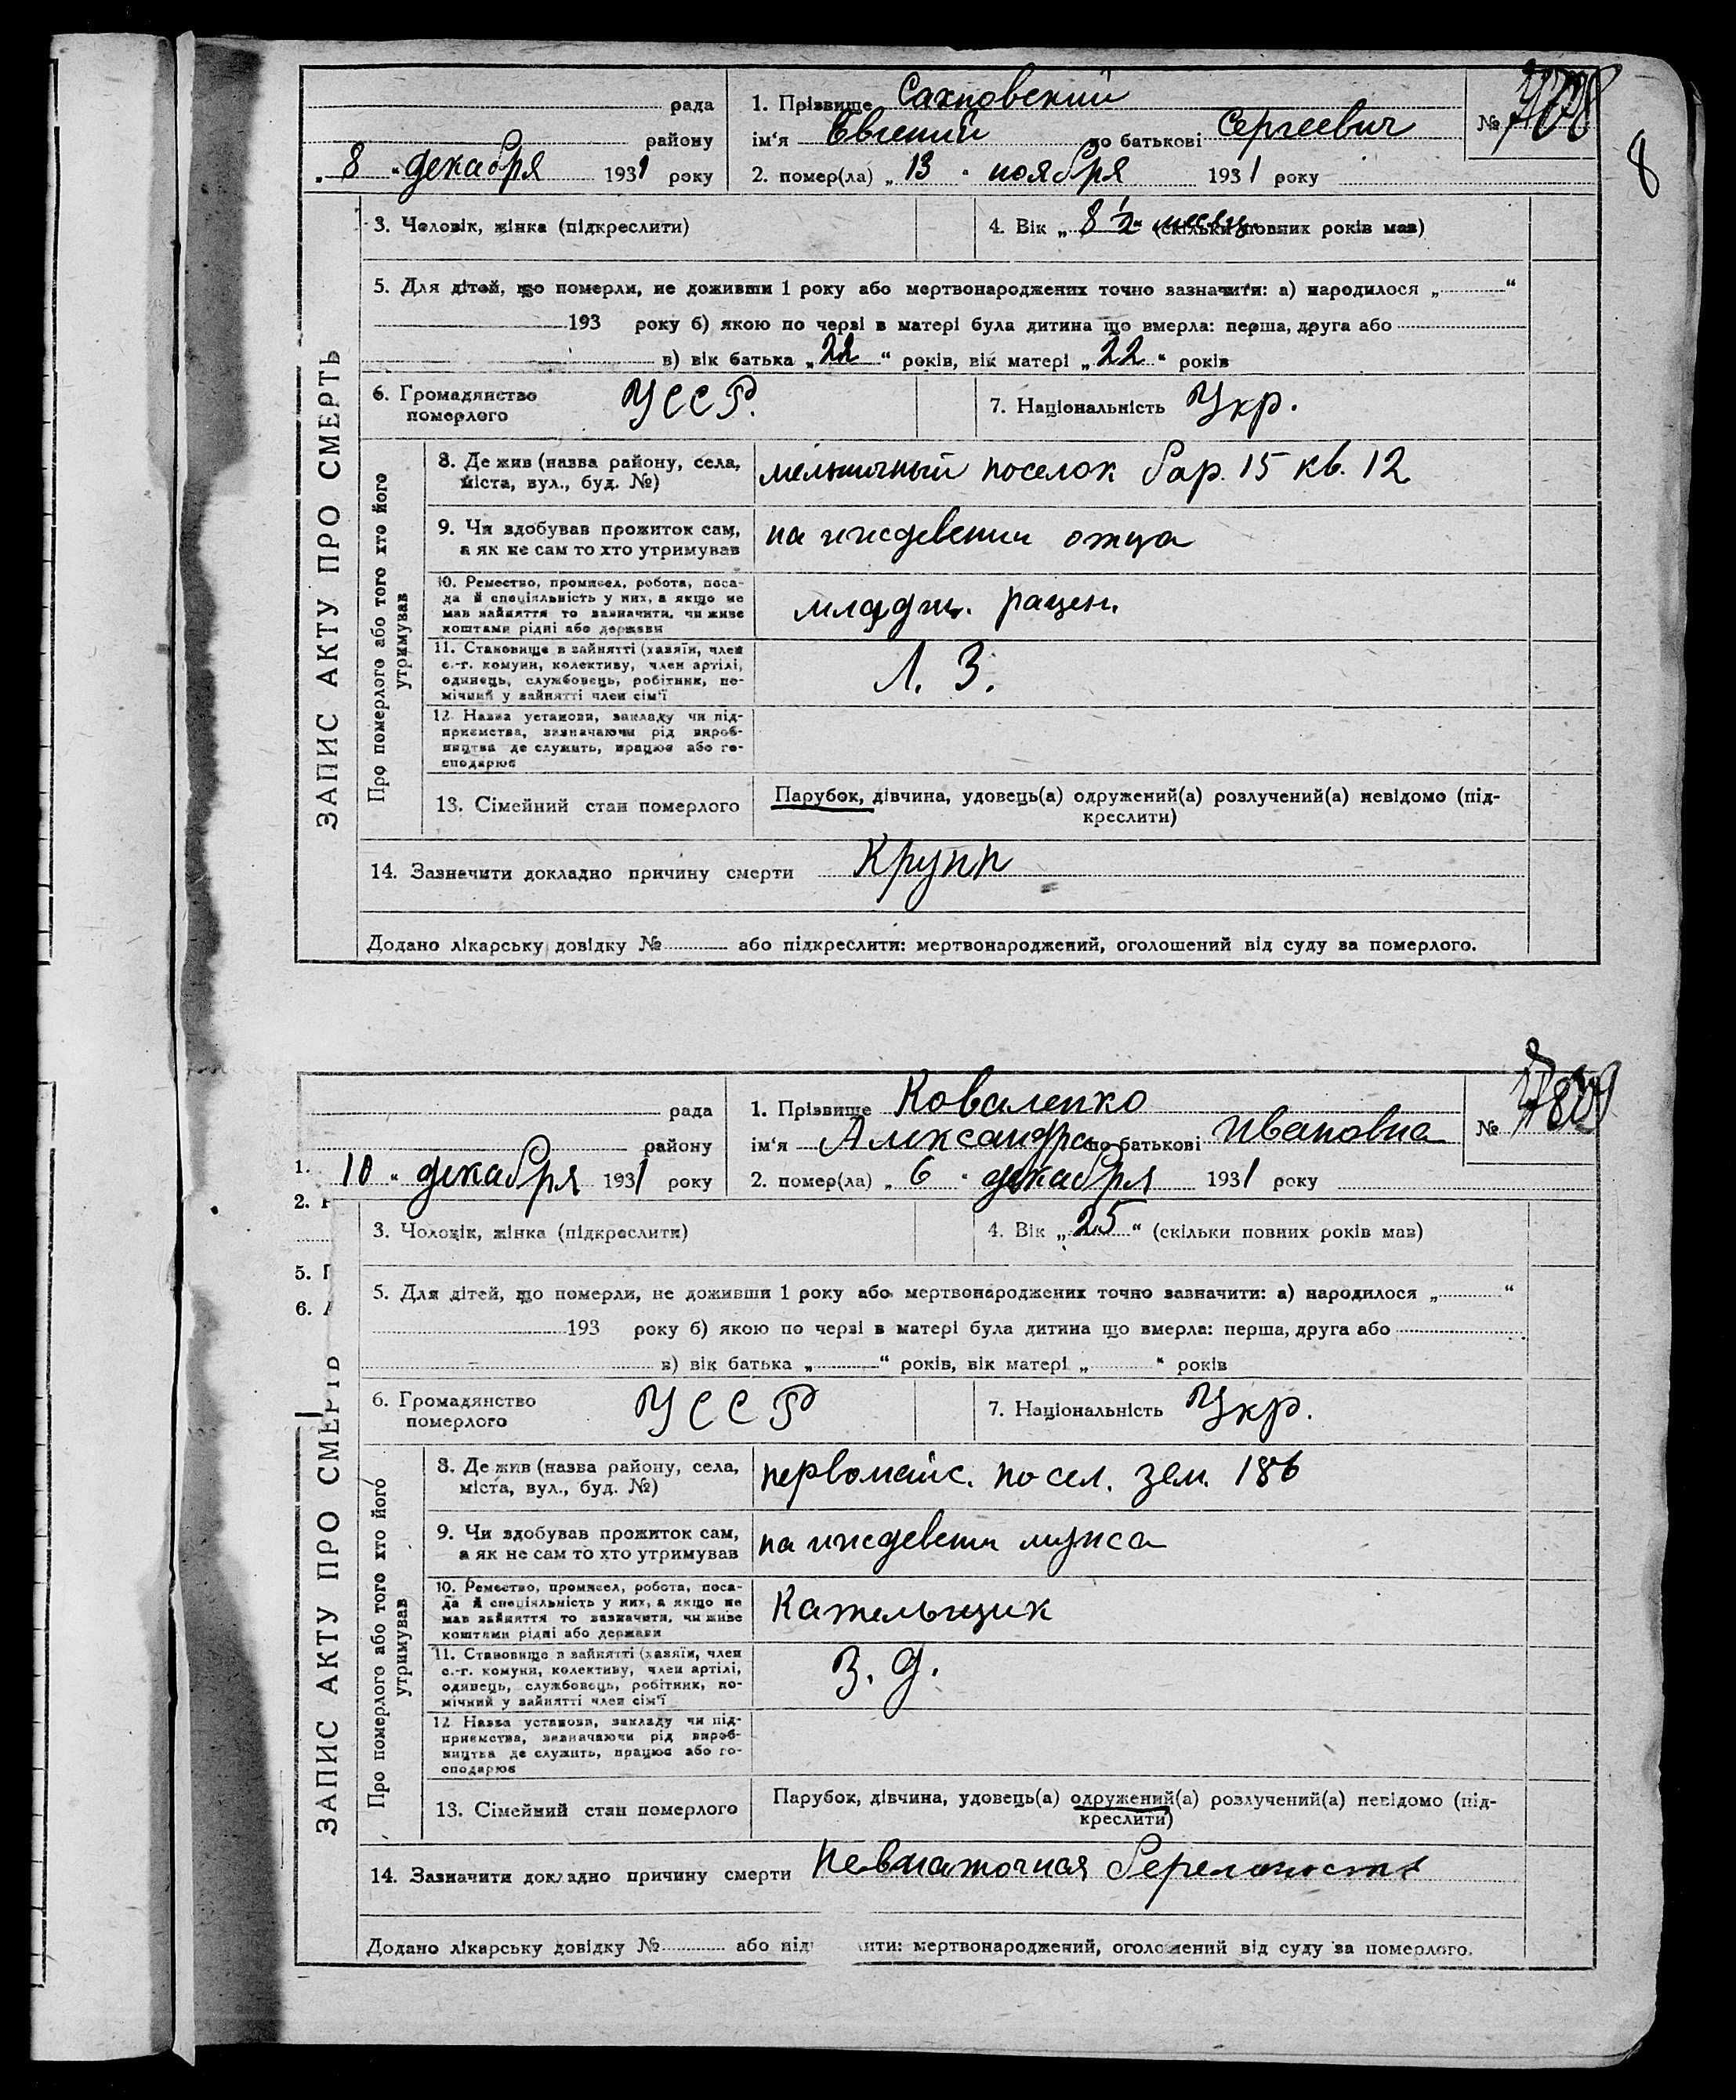 рада
району
„ 8 “ декабря 1931 року
1. Прізвище Сахновский
ім‘я Евгений по батькові Сергеевич
2. помер(ла) „ 13 “ ноября 1931 року
№
8
ЗАПИС АКТУ ПРО СМЕРТЬ
3. Чоловік, жінка (підкреслити)
4. Вік „ 8 1/2 “ месяц. (скільки повних років мав)
5. Для дітей, що померли, не доживши 1 року або мертвонароджених точно зазначити: а) народилося „ “
193 року б) якою по черзі в матері була дитина що вмерла: перша, друга або
в) вік батька „ 22 “ років, вік матері „ 22 “ років
6. Громадянство
померлого
УССР.
7. Національність Укр.
Про померлого або того хто його
утримував
8. Де жив (назва району, села,
міста, вул., буд. №)
мельничный поселок бар. 15 кв. 12
9. Чи здобував прожиток сам,
а як не сам то хто утримував
на иждевении отца
10. Ремество, промисел, робота, поса-
да й спеціяльність у них, а якщо не
мав зайняття то зазначити, чи живе
коштами рідні або держави
11. Становище в зайнятті (хазяїн, член
с.-г. комуни, колективу, член артілі,
одинець, службовець, робітник, по-
мічний у зайнятті член сім‘ї
Л. З.
12 Назва установи, закладу чи під-
приємства, зазначаючи рід вироб-
ництва де служить, працює або го-
сподарює
13. Сімейний стан померлого
Парубок, дівчина, удовець(а) одружений(а) розлучений(а) невідомо (під-
креслити)
14. Зазначити докладно причину смерти Крупп
Додано лікарську довідку № або підкреслити: мертвонароджений, оголошений від суду за померлого.
рада
району
10 “ декабря 1931 року
1. Прізвище Коваленко
ім‘я Александра по батькові Ивановна
2. помер(ла) „ 6 “ декабря 1931 року
№
1.
2.
5.
6.
ЗАПИС АКТУ ПРО СМЕРТЬ
3. Чоловік, жінка (підкреслити)
4. Вік „ 25 “ (скільки повних років мав)
5. Для дітей, що померли, не доживши 1 року або мертвонароджених точно зазначити: а) народилося „ “
193 року б) якою по черзі в матері була дитина що вмерла: перша, друга або
в) вік батька „ “ років, вік матері „ “ років
6. Громадянство
померлого
УССР
7. Національність Укр.
Про померлого або того хто його
утримував
8. Де жив (назва району, села,
міста, вул., буд. №)
первомайс. посел. зем. 186
9. Чи здобував прожиток сам,
а як не сам то хто утримував
на иждевени мужа
10. Ремество, промисел, робота, поса-
да й спеціяльність у них, а якщо не
мав зайняття то зазначити, чи живе
коштами рідні або держави
Кательщик
11. Становище в зайнятті (хазяїн, член
с.-г. комуни, колективу, член артілі,
одинець, службовець, робітник, по-
мічний у зайнятті член сім‘ї
З. д.
12 Назва установи, закладу чи під-
приємства, зазначаючи рід вироб-
ництва де служить, працює або го-
сподарює
13. Сімейний стан померлого
Парубок, дівчина, удовець(а) одружений(а) розлучений(а) невідомо (під-
креслити)
14. Зазначити докладно причину смерти Невматочная беременность
Додано лікарську довідку № або під ити: мертвонароджений, оголошений від суду за померлого.